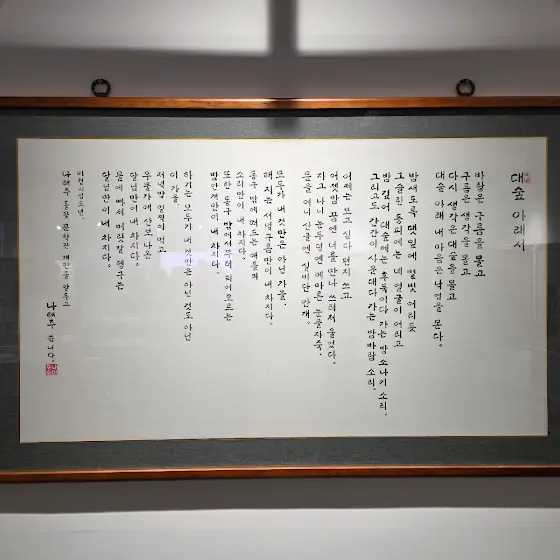 대숲 아래서
바람은 구름을 몰고
구름은 생각을 몰고
다시 생각은 대숲을 몰고
대숲 아래 내 마음은 낙엽을 몬다.
밤새도록 댓잎에 별빛 어리듯
그슬린 등피에는 네 얼굴이 어리고
밤 깊어 대숲에는 후둑이다 가는 밤소나기 소리.
그리고도 간간이 사운대다 가는 밤바람 소리.
어제는 보고 싶다 편지 쓰고
어젯밤 꿈엔 너를 만나 쓰러져 울었다.
자고 나니 눈두덩엔 메마른 눈물자죽,
문을 여니 산골엔 실비단 안개.
모두가 내 것만은 아닌 가을,
해 지는 서녘구름만이 내 차지다.
동구 밖에 떠드는 애들의
소리만이 내 차지다.
또한 동구 밖에서부터 피어오르는
밤안개만이 내 차지다.
하기는 모두가 내 것만은 아닌 것도 아닌
이 가을,
저녁밥 일찍이 먹고
우물가에 산보 나온
달님만이 내 차지다.
물에 빠져 머리칼 헹구는
달님만이 내 차지다.
이천이십오년,
나태주 풀꽃 문학관 개관을 앞두고
나태주 씁니다.